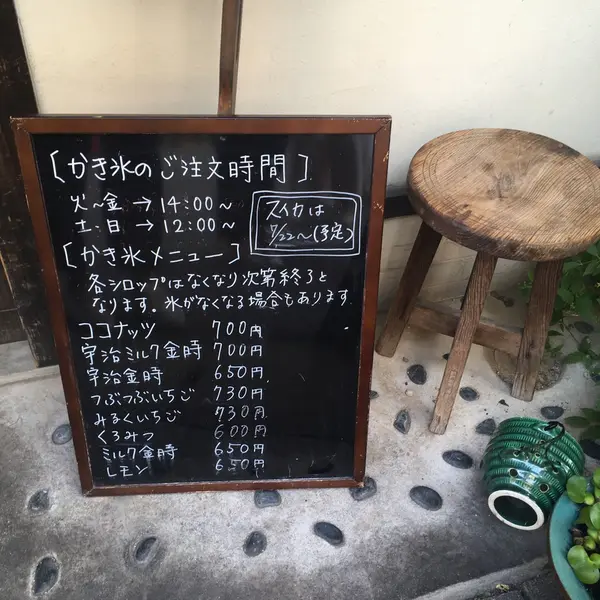 [かき氷のご注文時間]
火〜金→14:00〜
土・日→12:00〜
スイカは
7/22〜(予定)
[かき氷メニュー]
各シロップはなくなり次第終了と
なります。氷がなくなる場合もあります
ココナッツ 700円
宇治ミルク金時 700円
宇治金時 650円
つぶつぶいちご 730円
みるくいちご 730円
くろみつ 600円
ミルク金時 650円
レモン 650円